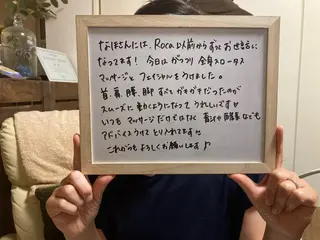 なほさんには、Roca以前からずっとお世話に
なってます! 今日はがっつり全身スロータス
マッサージとフェイシャルをうけました。
首、肩、腰、脚 ずっとガチガチだったのが
スムーズに動くようになってうれしいです♡
いつも マッサージだけではなく 食事や酵素なども
アドバイスうけて とり入れてます☺
これからも よろしくお願いします♪